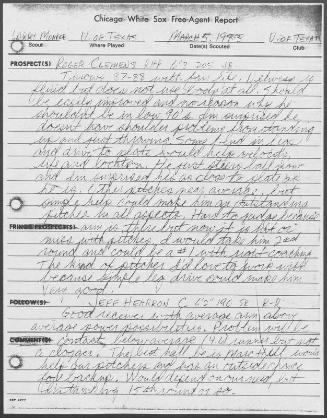 Chicago White Sox Free-Agent Report
U. of Texas March 5, 1983 U. of Texas
Scout Where Played Date(s) Scouted Club
PROSPECT(S) ROGER CLEMENS RHP 6'3 205 JR
Throws 87-88 with fair life. Delivery is
fluid but does not use body at all. Should
be easily improved and no reason why he
shouldn't be in low 90's. I'm surprised he
doesn't have shoulder problems from standing
up and just throwing. Some bend in
and drive to plate would help velocity,
life and location. He just steers ball now
and I'm surprised he's as close to plate as
he is. Other pitches near average, but
ample help could make him an outstanding
pitcher in all aspects. Hard to judge because
FRINGE PROSPECT(S) arm is there but now it is hit or
miss with pitches. I would take him 2nd
round and could be a #1 with right coaching.
The kind of pitcher I'd love to work with
because simple leg drive could make him
very good.
FOLLOW(S) JEFF HEARRON C 6'2" 190 SR R-R
Good receiver with average arm, above
average power possibilities. Problem will be
COMMENT(S) contact, below average but not
a clogger. The kid
help our pitchers and has an outside chance
for backup. Would depend on our need, but
15th round or so.